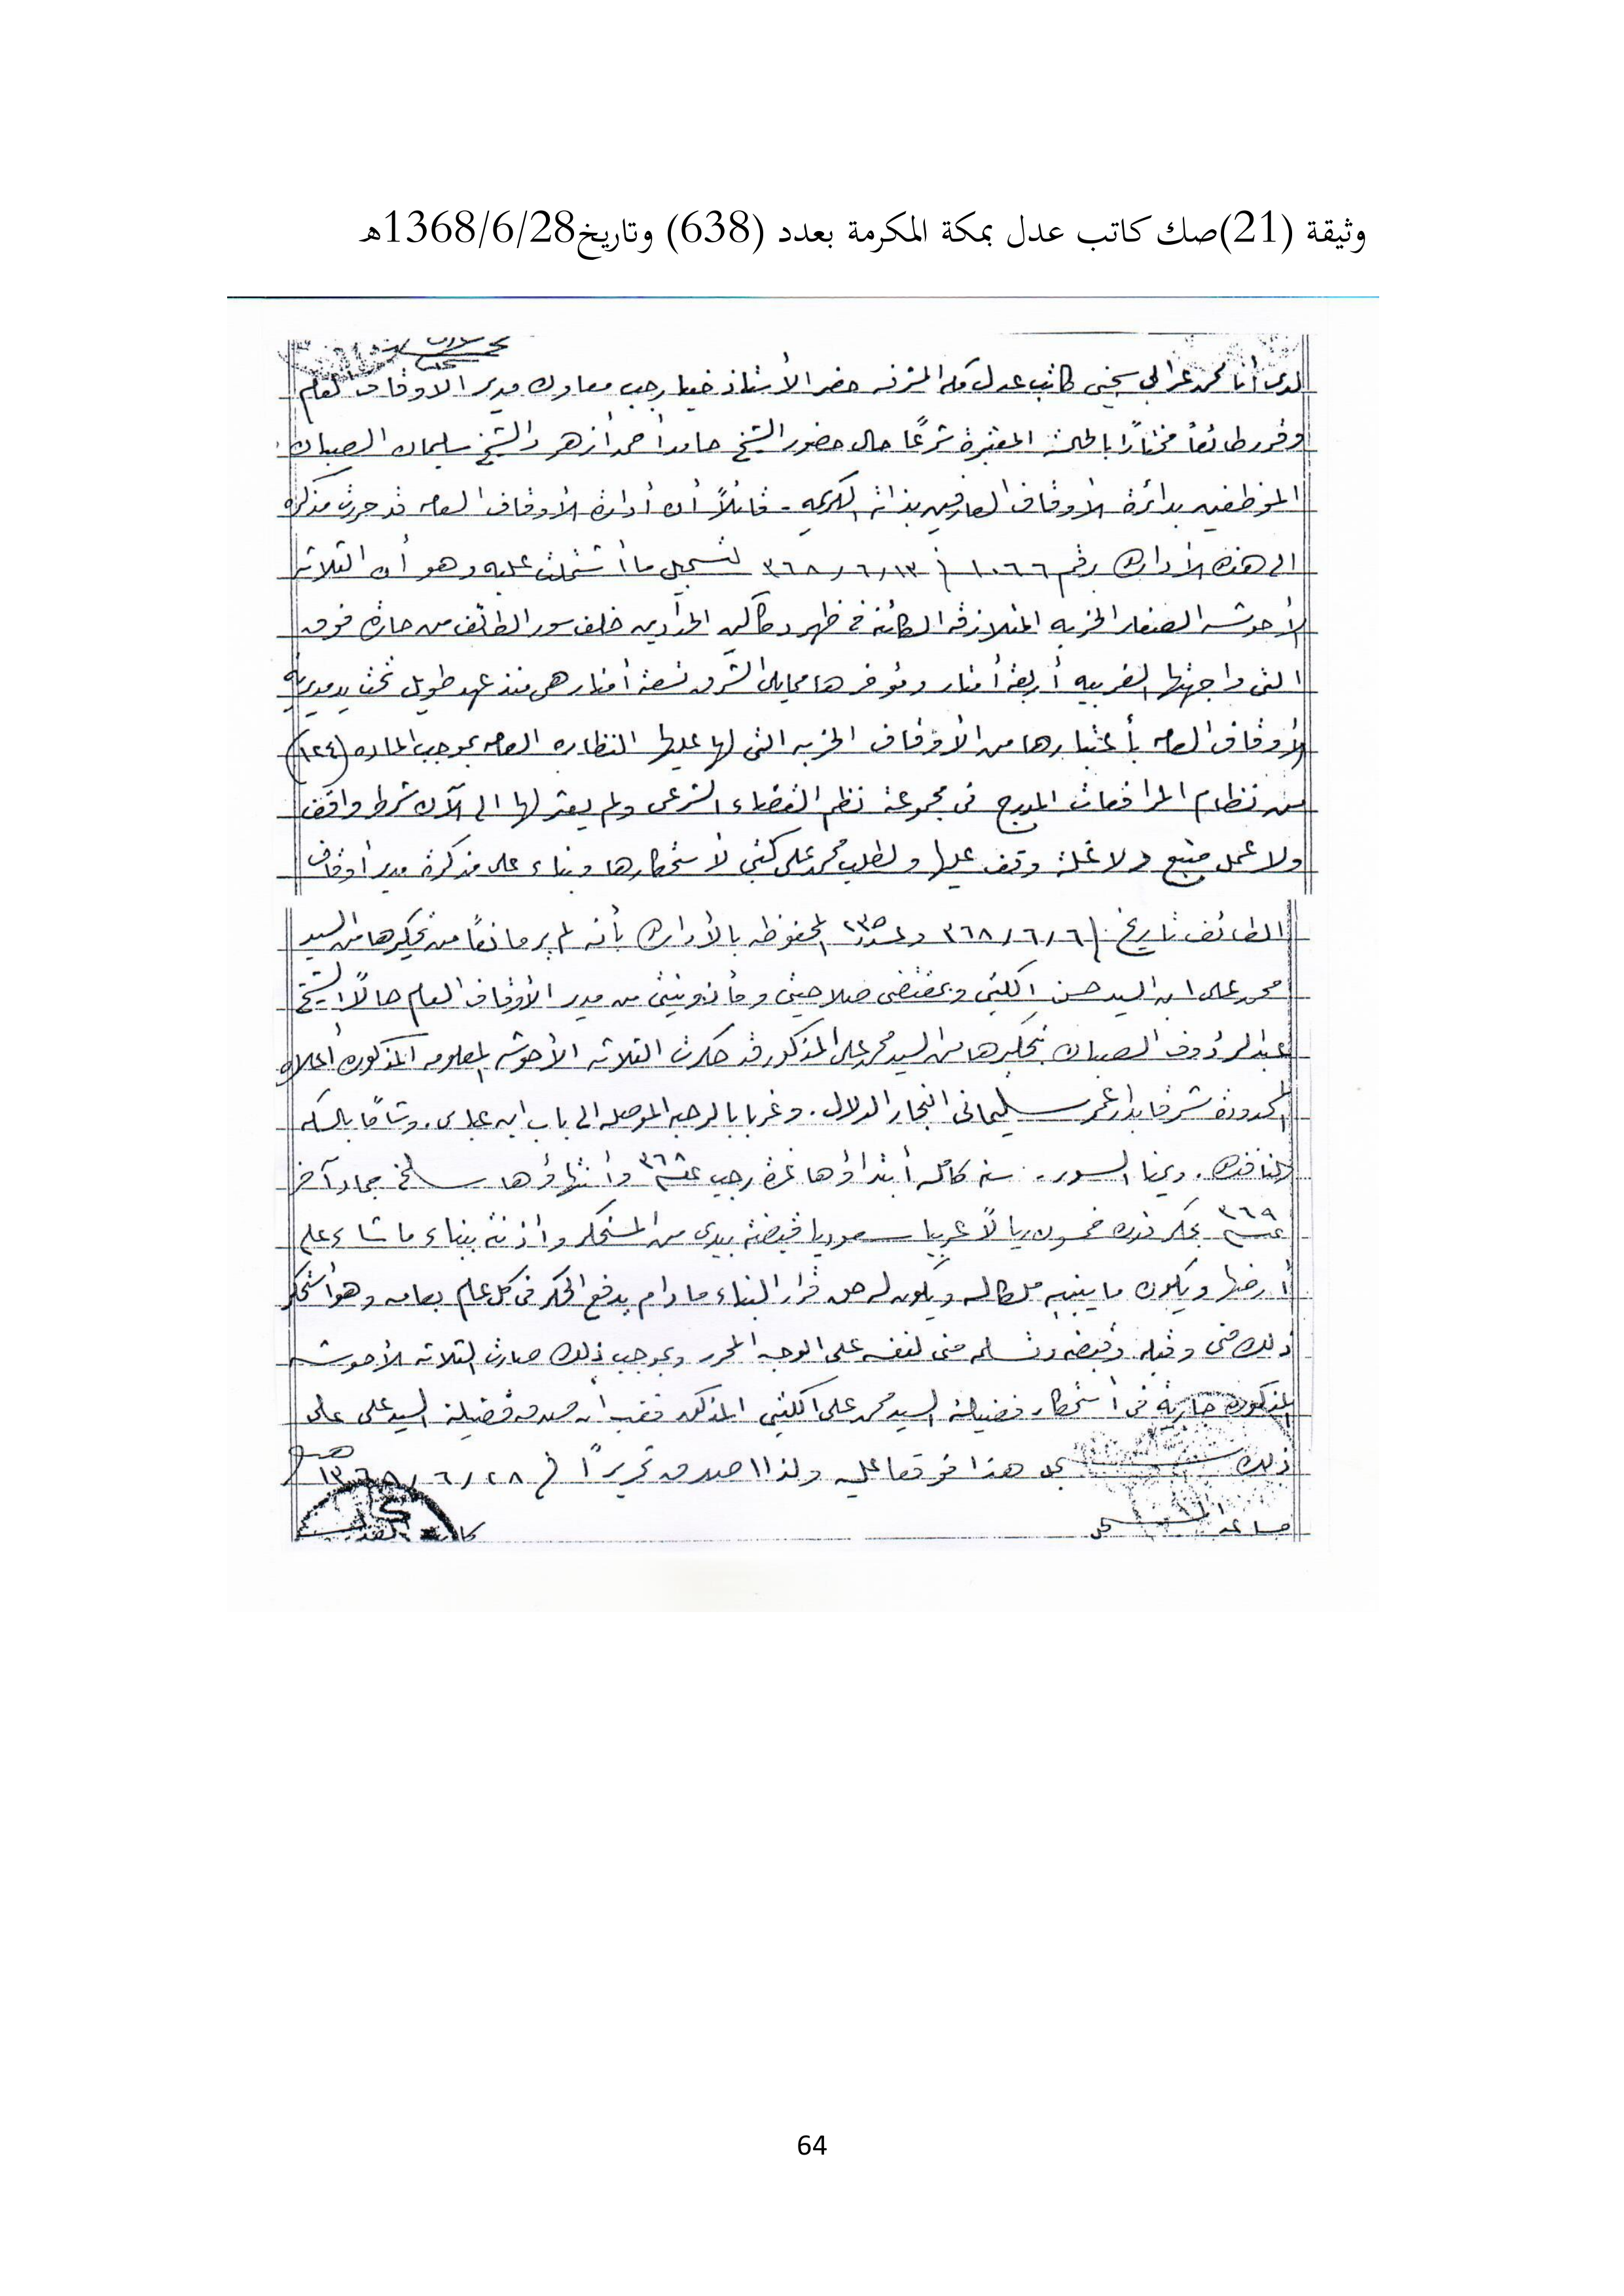 وثيقة (21)صك كاتب عدل بمكة المكرمة بعدد (638) وتاريخ1368/6/28هـ
لدى أنا محمد عرابي سجيني كاتب عدل مكه المشرفه حضر الأستاذ ضيا رجب معاون مدير الاوقاف العام
وقرر طائعاً مختاراً بالحالة المعتبرة شرعًا حال حضور الشيخ حامد أحمد أزهر والشيخ سليمان الصبان
الموظفين بدائرة الأوقاف العارفين بذاته الكريمه - قائلاً أن أدارة الأوقاف العامه قد حررت مذكره
الى هذه الأداره رقم ١٠٦٦ في ٣٦٨/٦/١٣ لتسجيل ما أشتملت عليه وهو أن الثلاثه
الأحوشه الصغار الخربه المتلازقه الكائنة في ظهر دكاكين الحدادين خلف سور الطائف من حارة فوق
التى واجهتها الغربيه أربعة أمتار ومؤخرها مما يلى الشرق تسعة أمتار هى منذ عهد طويل تحت يد مديرية
الأوقاف العامه بأعتبارها من الأوقاف الخربه التى لها عليها النظاره العامه بموجب الماده (١٢٤)
من نظام المرافعات المدرج فى مجموعة نظم القضاء الشرعى ولم يعثر لها الى الآن شرط واقف
ولا عمل متبع ولا غلة وقف عليها ولطلب محمد على كتبي لأستحكارها وبناء على مذكرة مدير أوقاف
الطائف تاريخ ٣٦٨/٦/٦ وعدد ٢٣٥ المحفوظه بالأداره بأنه لم ير مانعًا من تحكيرها من السيد
محمد على ابن السيد حسن الكتبي وبمقتضى صلاحيتى ومأذونيتى من مدير الأوقاف العام حالاً الشيخ
عبدالرؤوف الصبان بتحكيرها من السيد محمد على المذكور قد حكرت الثلاثه الأحوشه المعلومه المذكوره أعلاه
المحدودة شرقا بدار عمر سليمانى النجار الدلال . وغربا بالرحبه الموصله الى باب ابن عباس . وشامًا بالسكه
النافذه . ويمنا السور . سنه كامله أبتداؤها غرة رجب ٣٦٨ وأنتهاؤها سلخ جماد آخر
٣٦٩ بحكر قدره خمسون ريالاً عربيا سعوديا قبضته بيدى من المستحكر واذنته ببناء ما شاء على
أرضها ويكون ما يبنيه ملكا له ويكون له حق قرار البناء ما دام يدفع الحكر فى كل عام بعامه وهو أستحكر
ذلك منى وقبله وقبضه وتسلمه منى لنفسه على الوجه المحرر وبموجب ذلك صارت الثلاثه الأحوشه
المذكوره جاريةً فى أستحكار فضيلة السيد محمد على الكتبي المذكور فقب أن صدق فضيلة السيد على على
ذلك هذا فوقعا عليه ولذا اصدق تحريرًا في ١٣٦٨/٦/٢٨ هـ
64